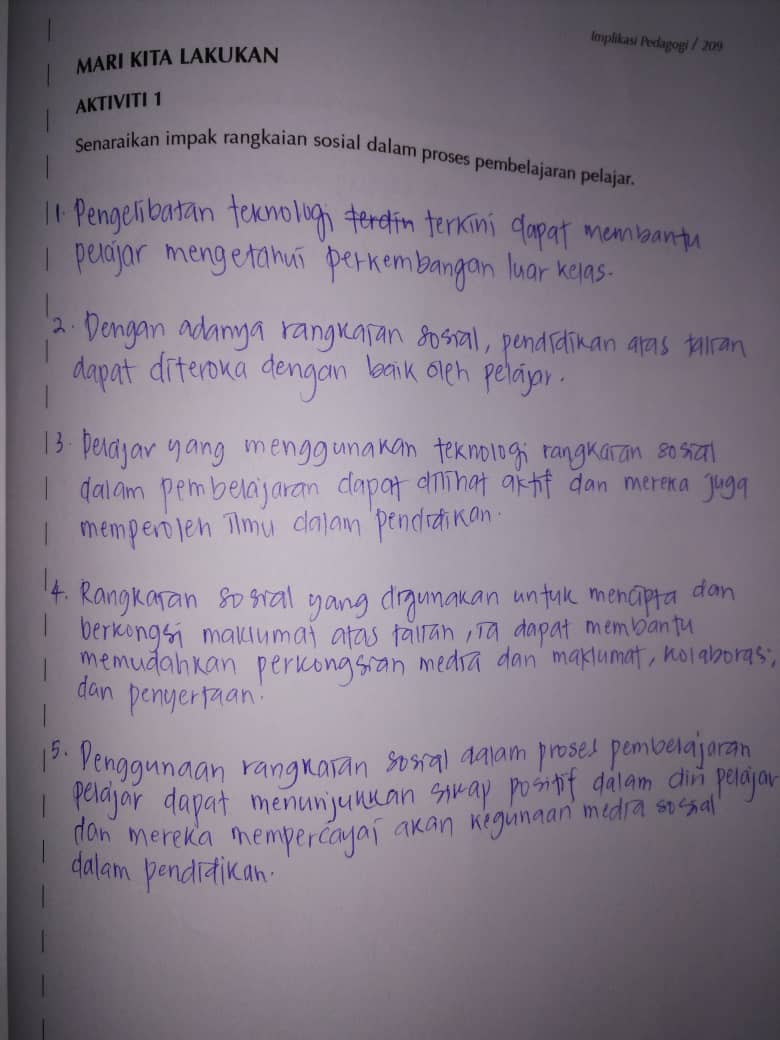 Implikasi Pedagogi / 209
MARI KITA LAKUKAN
AKTIVITI 1
Senaraikan impak rangkaian sosial dalam proses pembelajaran pelajar.
1. Pengelibatan teknologi terdin terkini dapat membantu
pelajar mengetahui perkembangan luar kelas.
2. Dengan adanya rangkaian sosial, pendidikan atas talian
dapat diteroka dengan baik oleh pelajar.
3. Pelajar yang menggunakan teknologi rangkaian sosial
dalam pembelajaran dapat dilihat aktif dan mereka juga
memperoleh ilmu dalam pendidikan.
4. Rangkaian sosial yang digunakan untuk mencipta dan
berkongsi maklumat atas talian, ia dapat membantu
memudahkan perkongsian media dan maklumat, kolaborasi,
dan penyertaan.
5. Penggunaan rangkaian sosial dalam proses pembelajaran
pelajar dapat menunjukkan sikap positif dalam diri pelajar
dan mereka mempercayai akan kegunaan media sosial
dalam pendidikan.